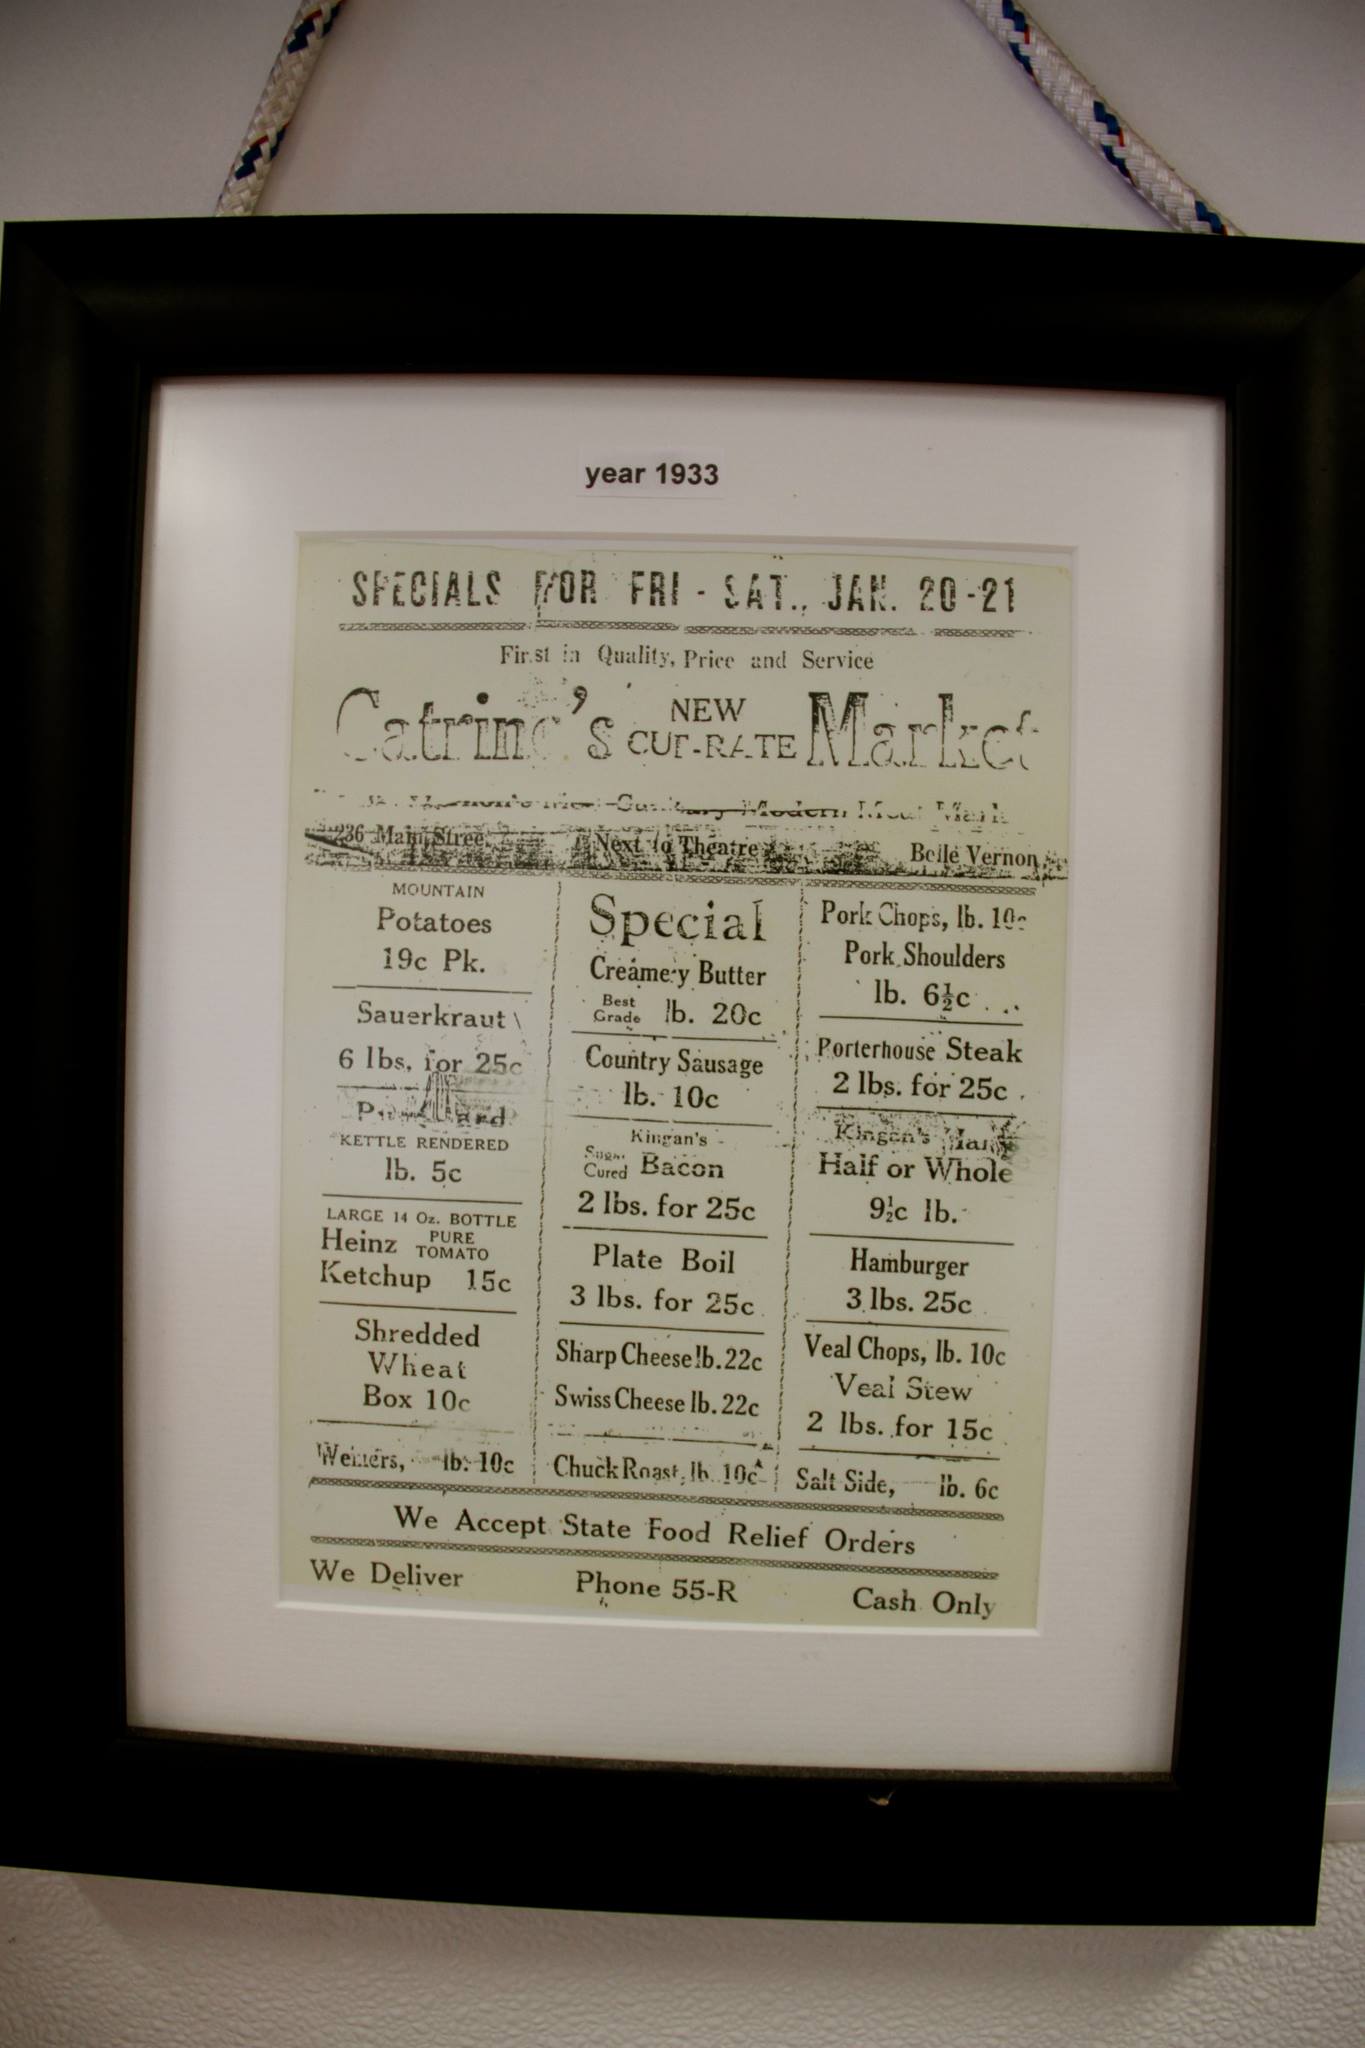 year 1933
SPECIALS FOR FRI - SAT., JAN. 20-21
First in Quality, Price and Service
Catrino's NEW CUT-RATE Market
Modern Meat
236 Main Street Next to Theatre Belle Vernon
MOUNTAIN
Potatoes
19c Pk.
Sauerkraut
6 lbs. for 25c
Pure Lard
KETTLE RENDERED
lb. 5c
LARGE 14 Oz. BOTTLE
Heinz PURE TOMATO
Ketchup 15c
Shredded
Wheat
Box 10c
Weiners, lb. 10c
Special
Creamery Butter
Best Grade lb. 20c
Country Sausage
lb. 10c
Kingan's
Sugar Cured Bacon
2 lbs. for 25c
Plate Boil
3 lbs. for 25c
Sharp Cheese lb. 22c
Swiss Cheese lb. 22c
Chuck Roast, lb. 10c
Pork Chops, lb. 10c
Pork Shoulders
lb. 6½c
Porterhouse Steak
2 lbs. for 25c
Kingan's Hams
Half or Whole
9½c lb.
Hamburger
3 lbs. 25c
Veal Chops, lb. 10c
Veal Stew
2 lbs. for 15c
Salt Side, lb. 6c
We Accept State Food Relief Orders
We Deliver Phone 55-R Cash Only